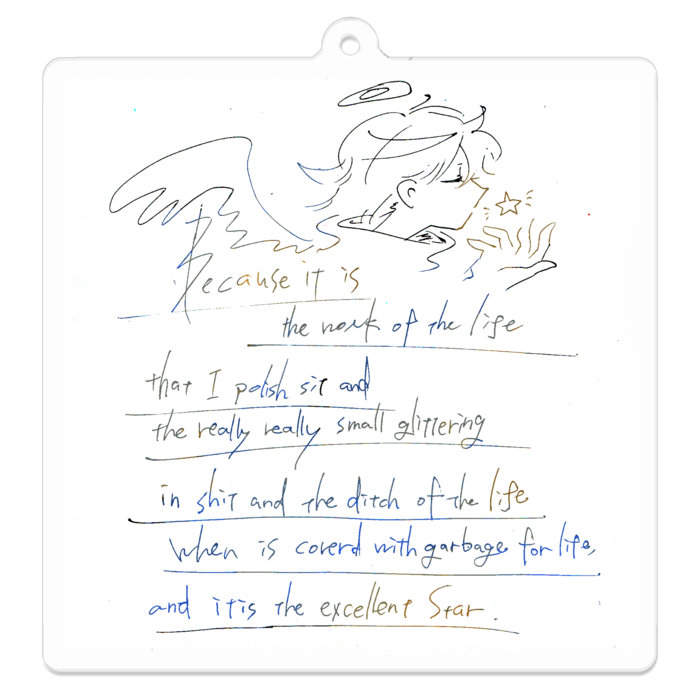 Because it is
the work of the life
that I polish sit and
the really really small glittering
in shit and the ditch of the life
when is coverd with garbage for life,
and itis the excellent Star.